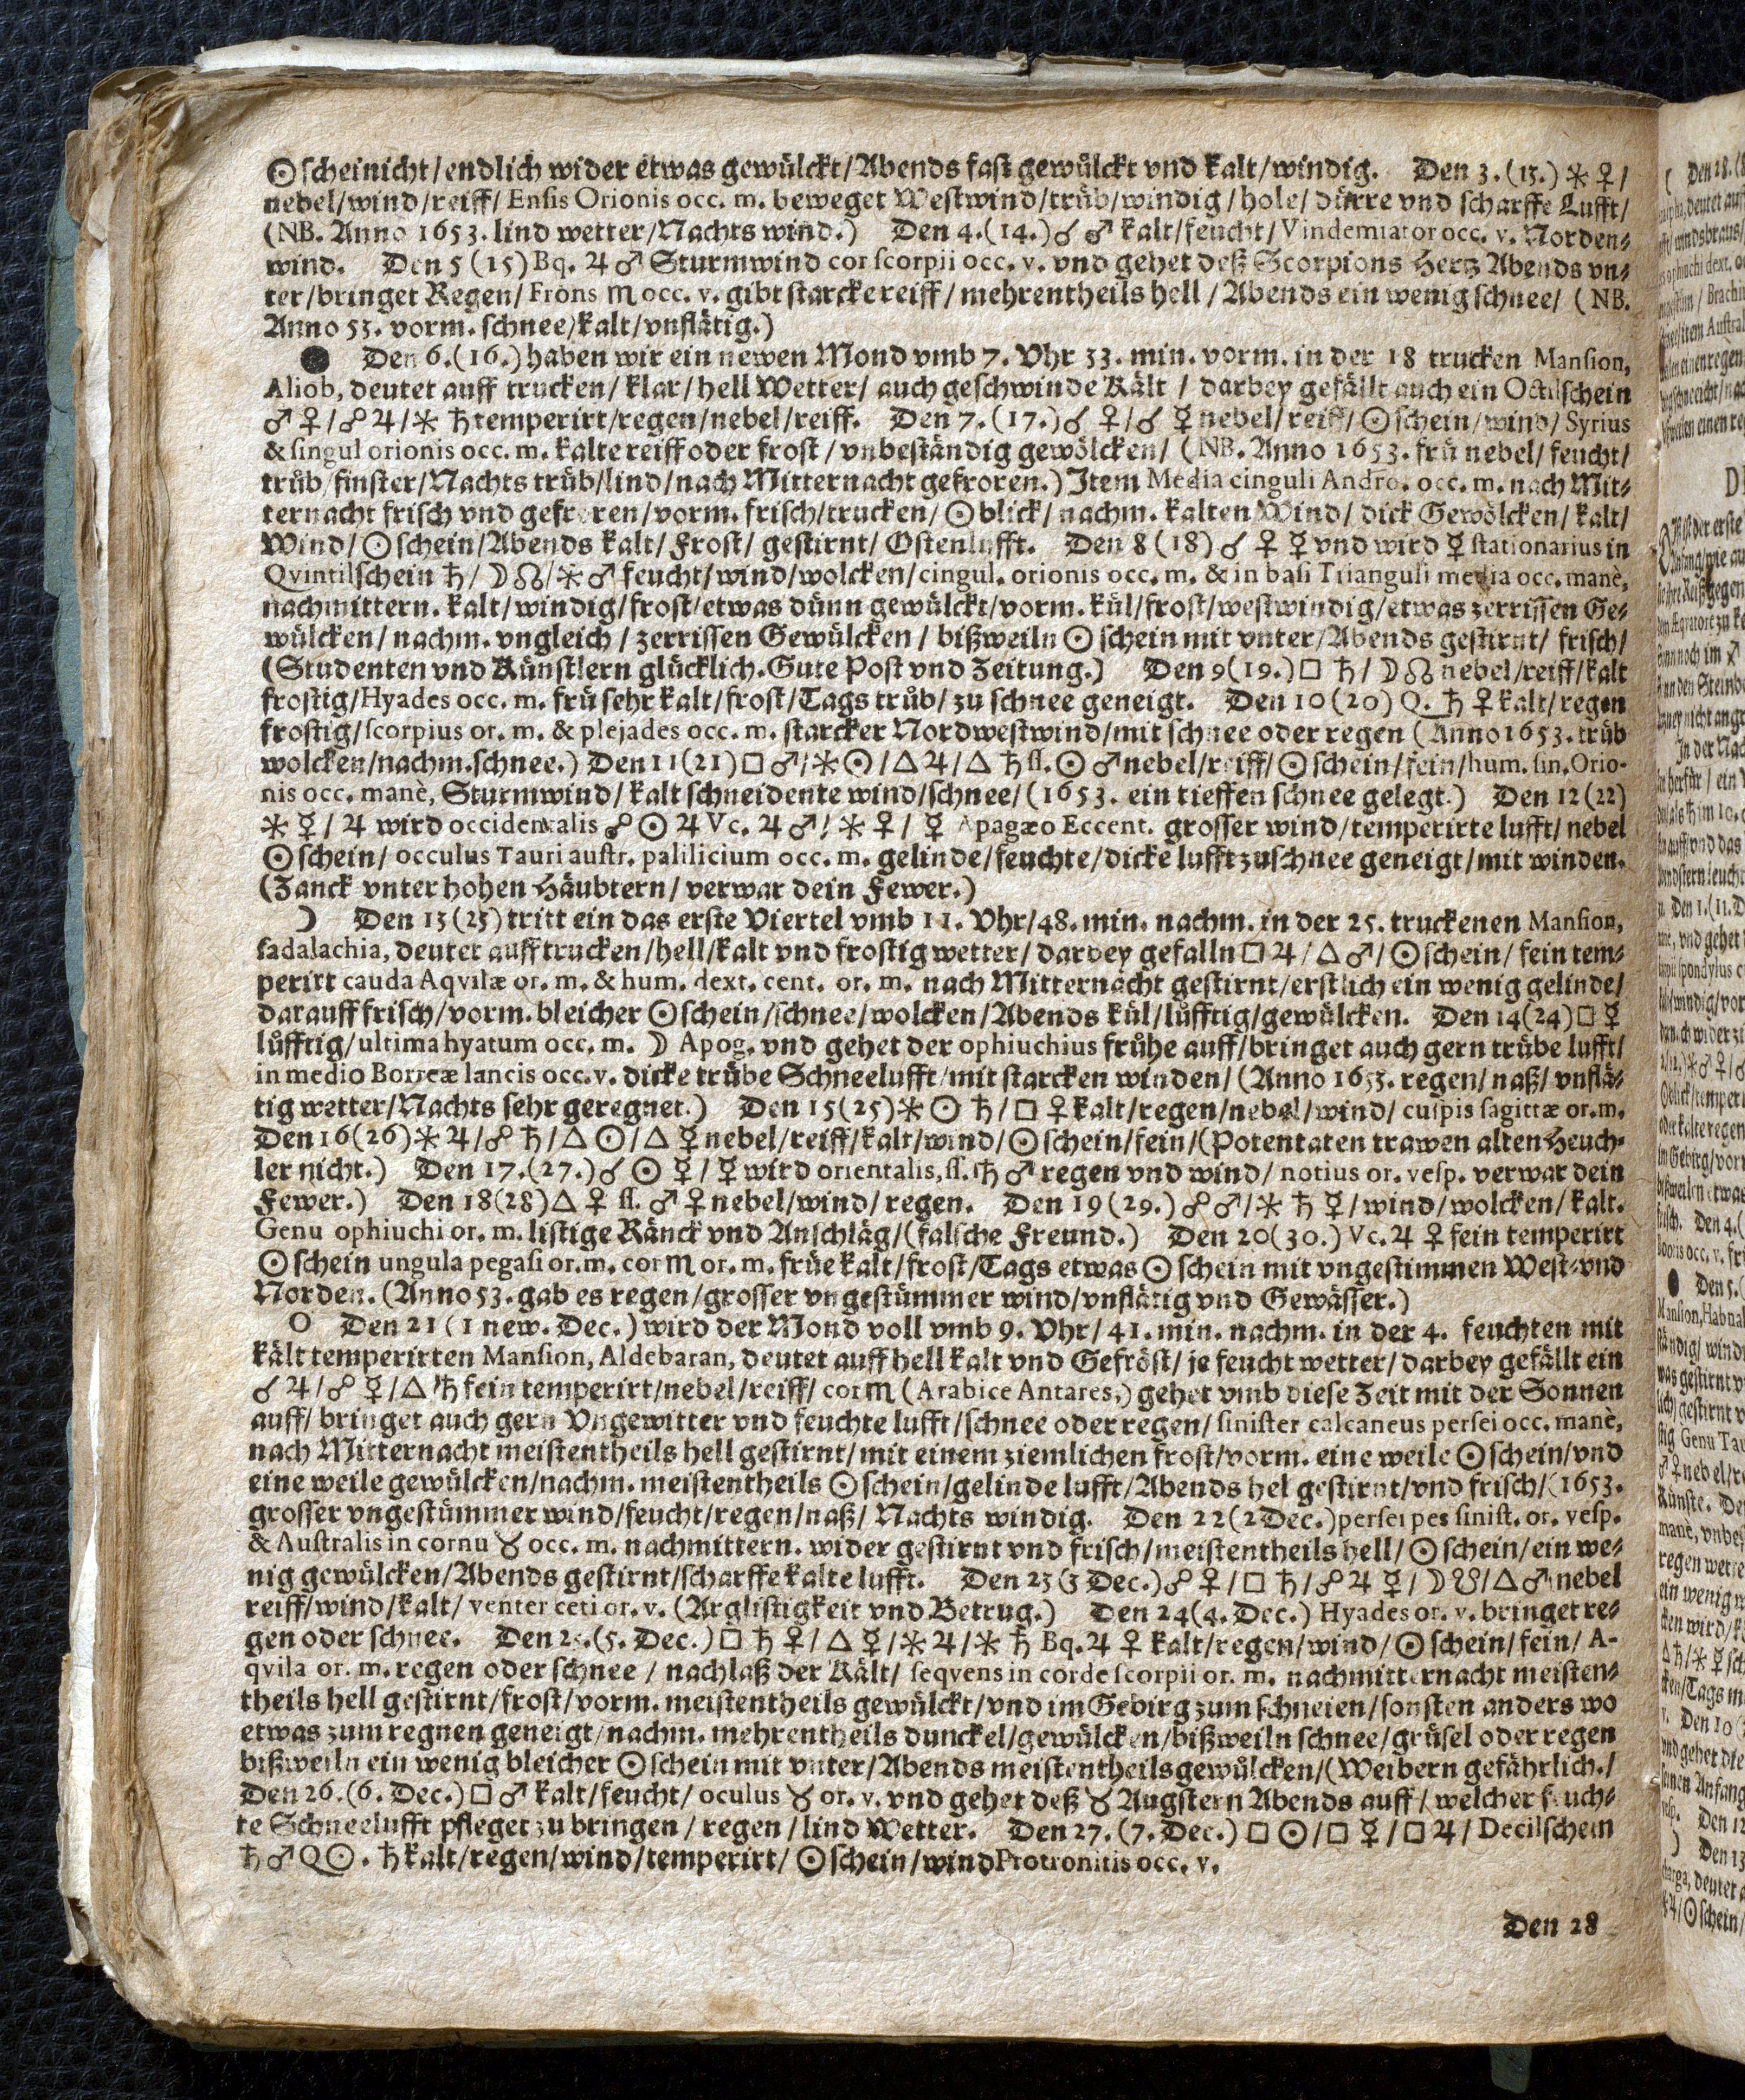 ☉scheinicht/endlich wider etwas gewülckt/Abends fast gewülckt vnd kalt/windig. Den 3.(13.) ⚹ ♀/
nebel/wind/reiff/ Ensis Orionis occ. m. beweget Westwind/trüb/windig/hole/ dürre vnd scharffe Lufft/
(NB. Anno 1653. lind wetter/Nachts wind.) Den 4.(14.)☌ ♂ kalt/feucht/Vindemiator occ. v. Norden⸗
wind. Den 5 (15) Bq. ♃ ♂ Sturmwind cor scorpii occ. v. vnd gehet deß Scorpions Hertz Abends vn⸗
ter/bringet Regen/ Frons ♏ occ. v. gibt starcke reiff/mehrentheils hell/Abends ein wenig schnee/ (NB.
Anno 53. vorm. schnee/kalt/vnflätig.)
● Den 6.(16.) haben wir ein newen Mond vmb 7. Vhr 33. min. vorm. in der 18 trucken Mansion,
Aliob, deutet auff trucken/ klar/ hell Wetter/ auch geschwinde Kält / darbey gefällt auch ein Octilschein
♂ ♀/☍ ♃/⚹ ♄ temperirt/regen/nebel/reiff. Den 7.(17.)☌ ♀/☌ ☿ nebel/reiff/☉schein/wind/ Syrius
& singul orionis occ. m. kalte reiff oder frost/vnbeständig gewölcken/ (NB. Anno 1653. frü nebel/feucht/
trüb/finster/Nachts trüb/lind/nach Mitternacht gefroren.) Item Media cinguli Andro. occ. m. nach Mit⸗
ternacht frisch vnd gefroren/vorm. frisch/trucken/☉blick/nachm. kalten Wind/ dick Gewölcken/ kalt/
Wind/☉schein/Abends kalt/ Frost/ gestirnt/ Ostenlufft. Den 8 (18)☌ ♀ ☿ vnd wird ☿ stationarius in
Qvintilschein ♄/☽☊/⚹ ♂ feucht/wind/wolcken/cingul. orionis occ. m. & in basi Trianguli media occ. manè,
nachmittern. kalt/windig/frost/etwas dünn gewülckt/vorm. kül/frost/westwindig/etwas zerrissen Ge⸗
wülcken/nachm. vngleich/zerrissen Gewülcken/ bißweiln ☉schein mit vnter/Abends gestirnt/ frisch/
(Studenten vnd Künstlern glücklich. Gute Post vnd Zeitung.) Den 9(19.)□ ♄/☽☊ nebel/reiff/kalt
frostig/Hyades occ. m. frü sehr kalt/frost/Tags trüb/ zu schnee geneigt. Den 10(20) Q. ♄ ♀ kalt/regen
frostig/scorpius or. m. & plejades occ. m. starcker Nordwestwind/mit schnee oder regen (Anno 1653. trüb
wolcken/nachm. schnee.) Den 11(21)□ ♂/⚹☉/△ ♃/△ ♄ ſſ. ☉ ♂ nebel/reiff/☉schein/fein/hum. sin. Orio-
nis occ. manè, Sturmwind/kalt schneidente wind/schnee/(1653. ein tieffen schnee gelegt.) Den 12(22)
⚹ ☿/ ♃ wird occidentalis ☍ ☉ ♃ Vc. ♃ ♂/ ⚹ ♀/ ☿ Apagæo Eccent. grosser wind/temperirte lufft/nebel
☉schein/ occulus Tauri austr. palilicium occ. m. gelinde/feuchte/dicke lufft zu schnee geneigt/mit winden.
(Zanck vnter hohen Häubtern/verwar dein Fewer.)
☽ Den 13(23) tritt ein das erste Viertel vmb 11. Vhr/48. min. nachm. in der 25. truckenen Mansion,
sadalachia, deutet auff trucken/hell/kalt vnd frostig wetter/ darbey gefalln□ ♃/△ ♂/☉schein/ fein tem⸗
perirt cauda Aqvilæ or. m. & hum. dext. cent. or. m. nach Mitternacht gestirnt/erstlich ein wenig gelinde/
darauff frisch/vorm. bleicher ☉schein/schnee/wolcken/Abends kül/lüfftig/gewülcken. Den 14(24)□ ☿
lüfftig/ultima hyatum occ. m. ☽ Apog. vnd gehet der ophiuchius frühe auff/bringet auch gern trübe lufft/
in medio Borreæ lancis occ. v. dicke trübe Schneelufft/mit starcken winden/ (Anno 1653. regen/naß/vnflä⸗
tig wetter/Nachts sehr geregnet.) Den 15(25)⚹ ☉ ♄/□ ♀ kalt/regen/nebel/wind/ cuspis sagittæ or.m.
Den 16(26)⚹ ♃/☍ ♄/△ ☉/△ ☿ nebel/reiff/kalt/wind/☉schein/fein/(Potentaten trawen alten Heuch⸗
ler nicht.) Den 17.(27.)☌ ☉ ☿/☿ wird orientalis, ſſ. ♄ ♂ regen vnd wind/ notius or. vesp. verwar dein
Fewer.) Den 18(28)△ ♀ ſſ. ♂ ♀ nebel/wind/regen. Den 19(29.)☍ ♂/⚹ ♄ ☿/wind/wolcken/kalt.
Genu ophiuchi or. m. listige Ränck vnd Anschläg/(falsche Freund.) Den 20(30.) Vc. ♃ ♀ fein temperirt
☉schein ungula pegasi or. m. cor ♏ or. m. früe kalt/frost/Tags etwas ☉schein mit vngestimmen West⸗vnd
Norden. (Anno 53. gab es regen/grosser vngestümmer wind/vnflätig vnd Gewässer.)
○ Den 21 (1 new. Dec.) wird der Mond voll vmb 9. Vhr/41. min. nachm. in der 4. feuchten mit
kält temperirten Mansion, Aldebaran, deutet auff hell kalt vnd Gefröst/je feucht wetter/darbey gefällt ein
☌ ♃/☍ ☿/△ ♄ fein temperirt/nebel/reiff/ cor ♏ (Arabice Antares,) gehet vmb diese Zeit mit der Sonnen
auff/bringet auch gern Vngewitter vnd feuchte lufft/schnee oder regen/ sinister calcaneus persei occ. manè,
nach Mitternacht meistentheils hell gestirnt/mit einem ziemlichen frost/vorm. eine weile ☉schein/vnd
eine weile gewülcken/nachm. meistentheils ☉schein/gelinde lufft/Abends hel gestirnt/vnd frisch/(1653.
grosser vngestümmer wind/feucht/regen/naß/ Nachts windig. Den 22(2 Dec.) persei pes sinist. or. vesp.
& Australis in cornu ♉ occ. m. nachmittern. wider gestirnt vnd frisch/meistentheils hell/☉schein/ein we⸗
nig gewülcken/Abends gestirnt/scharffe kalte lufft. Den 23(3 Dec.)☍ ♀/□ ♄/☍ ♃ ☿/☽☋/△ ♂ nebel
reiff/wind/kalt/ venter ceti or. v. (Arglistigkeit vnd Betrug.) Den 24(4. Dec.) Hyades or. v. bringet re⸗
gen oder schnee. Den 25.(5. Dec.)□ ♄ ♀/△ ☿/⚹ ♃/⚹ ♄ Bq. ♃ ♀ kalt/regen/wind/☉schein/fein/ A-
qvila or. m. regen oder schnee/ nachlaß der Kält/ seqvens in corde scorpii or. m. nachmitternacht meisten⸗
theils hell gestirnt/frost/vorm. meistentheils gewülckt/vnd im Gebirg zum schneien/sonsten anders wo
etwas zum regnen geneigt/nachm. mehrentheils dunckel/gewülcken/bißweiln schnee/grüsel oder regen
bißweiln ein wenig bleicher ☉schein mit vnter/Abends meistentheils gewülcken/(Weibern gefährlich./
Den 26.(6. Dec.)□ ♂ kalt/feucht/ oculus ♉ or. v. vnd gehet deß ♉ Augstern Abends auff/welcher feuch⸗
te Schneelufft pfleget zu bringen/regen/lind Wetter. Den 27.(7. Dec.)□ ☉/□ ☿/□ ♃/ Decilschein
♄ ♂ Q☉. ♄ kalt/regen/wind/temperirt/☉schein/wind Protronitis occ. v.
Den 28